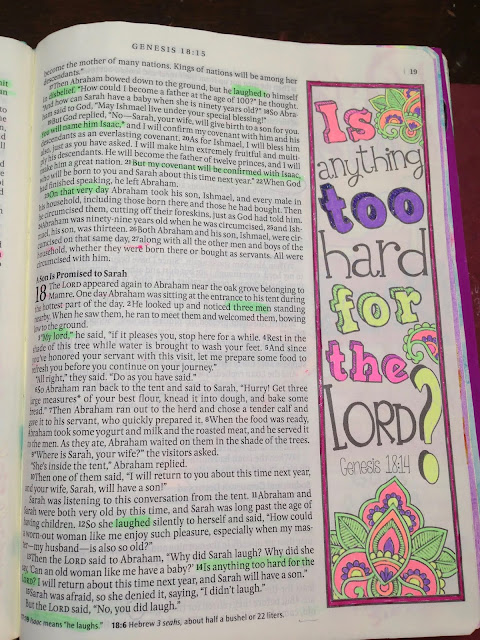 GENESIS 18:15
19
become the mother of many nations. Kings of nations will be among her
descendants."
17Then Abraham bowed down to the ground, but he laughed to himself
in disbelief. "How could I become a father at the age of 100?" he thought.
"And how can Sarah have a baby when she is ninety years old?" 18So Abra-
ham said to God, "May Ishmael live under your special blessing!"
19But God replied, "No—Sarah, your wife, will give birth to a son for you.
You will name him Isaac,* and I will confirm my covenant with him and his
descendants as an everlasting covenant. 20As for Ishmael, I will bless him
also, just as you have asked. I will make him extremely fruitful and multi-
ply his descendants. He will become the father of twelve princes, and I will
make him a great nation. 21But my covenant will be confirmed with Isaac,
who will be born to you and Sarah about this time next year." 22When God
had finished speaking, he left Abraham.
23On that very day Abraham took his son, Ishmael, and every male in
his household, including those born there and those he had bought. Then
he circumcised them, cutting off their foreskins, just as God had told him.
24Abraham was ninety-nine years old when he was circumcised, 25and Ish-
mael, his son, was thirteen. 26Both Abraham and his son, Ishmael, were cir-
cumcised on that same day, 27along with all the other men and boys of the
household, whether they were born there or bought as servants. All were
circumcised with him.
A Son is Promised to Sarah
18 The LORD appeared again to Abraham near the oak grove belonging to
Mamre. One day Abraham was sitting at the entrance to his tent during
the hottest part of the day. 2He looked up and noticed three men standing
nearby. When he saw them, he ran to meet them and welcomed them, bowing
low to the ground.
3"My lord," he said, "if it pleases you, stop here for a while. 4Rest in the
shade of this tree while water is brought to wash your feet. 5And since
you've honored your servant with this visit, let me prepare some food to
refresh you before you continue on your journey."
"All right," they said. "Do as you have said."
6So Abraham ran back to the tent and said to Sarah, "Hurry! Get three
large measures* of your best flour, knead it into dough, and bake some
bread." 7Then Abraham ran out to the herd and chose a tender calf and
gave it to his servant, who quickly prepared it. 8When the food was ready,
Abraham took some yogurt and milk and the roasted meat, and he served it
to the men. As they ate, Abraham waited on them in the shade of the trees.
9"Where is Sarah, your wife?" the visitors asked.
"She's inside the tent," Abraham replied.
10Then one of them said, "I will return to you about this time next year,
and your wife, Sarah, will have a son!"
Sarah was listening to this conversation from the tent. 11Abraham and
Sarah were both very old by this time, and Sarah was long past the age of
having children. 12So she laughed silently to herself and said, "How could
a worn-out woman like me enjoy such pleasure, especially when my mas-
ter—my husband—is also so old?"
13Then the LORD said to Abraham, "Why did Sarah laugh? Why did she
say, 'Can an old woman like me have a baby?' 14Is anything too hard for the
LORD? I will return about this time next year, and Sarah will have a son."
15Sarah was afraid, so she denied it, saying, "I didn't laugh."
But the LORD said, "No, you did laugh."
Isaac means "he laughs." 18:6 Hebrew 3 seahs, about half a bushel or 22 liters.
Is
anything
too
hard
for
the
LORD?
Genesis 18:14